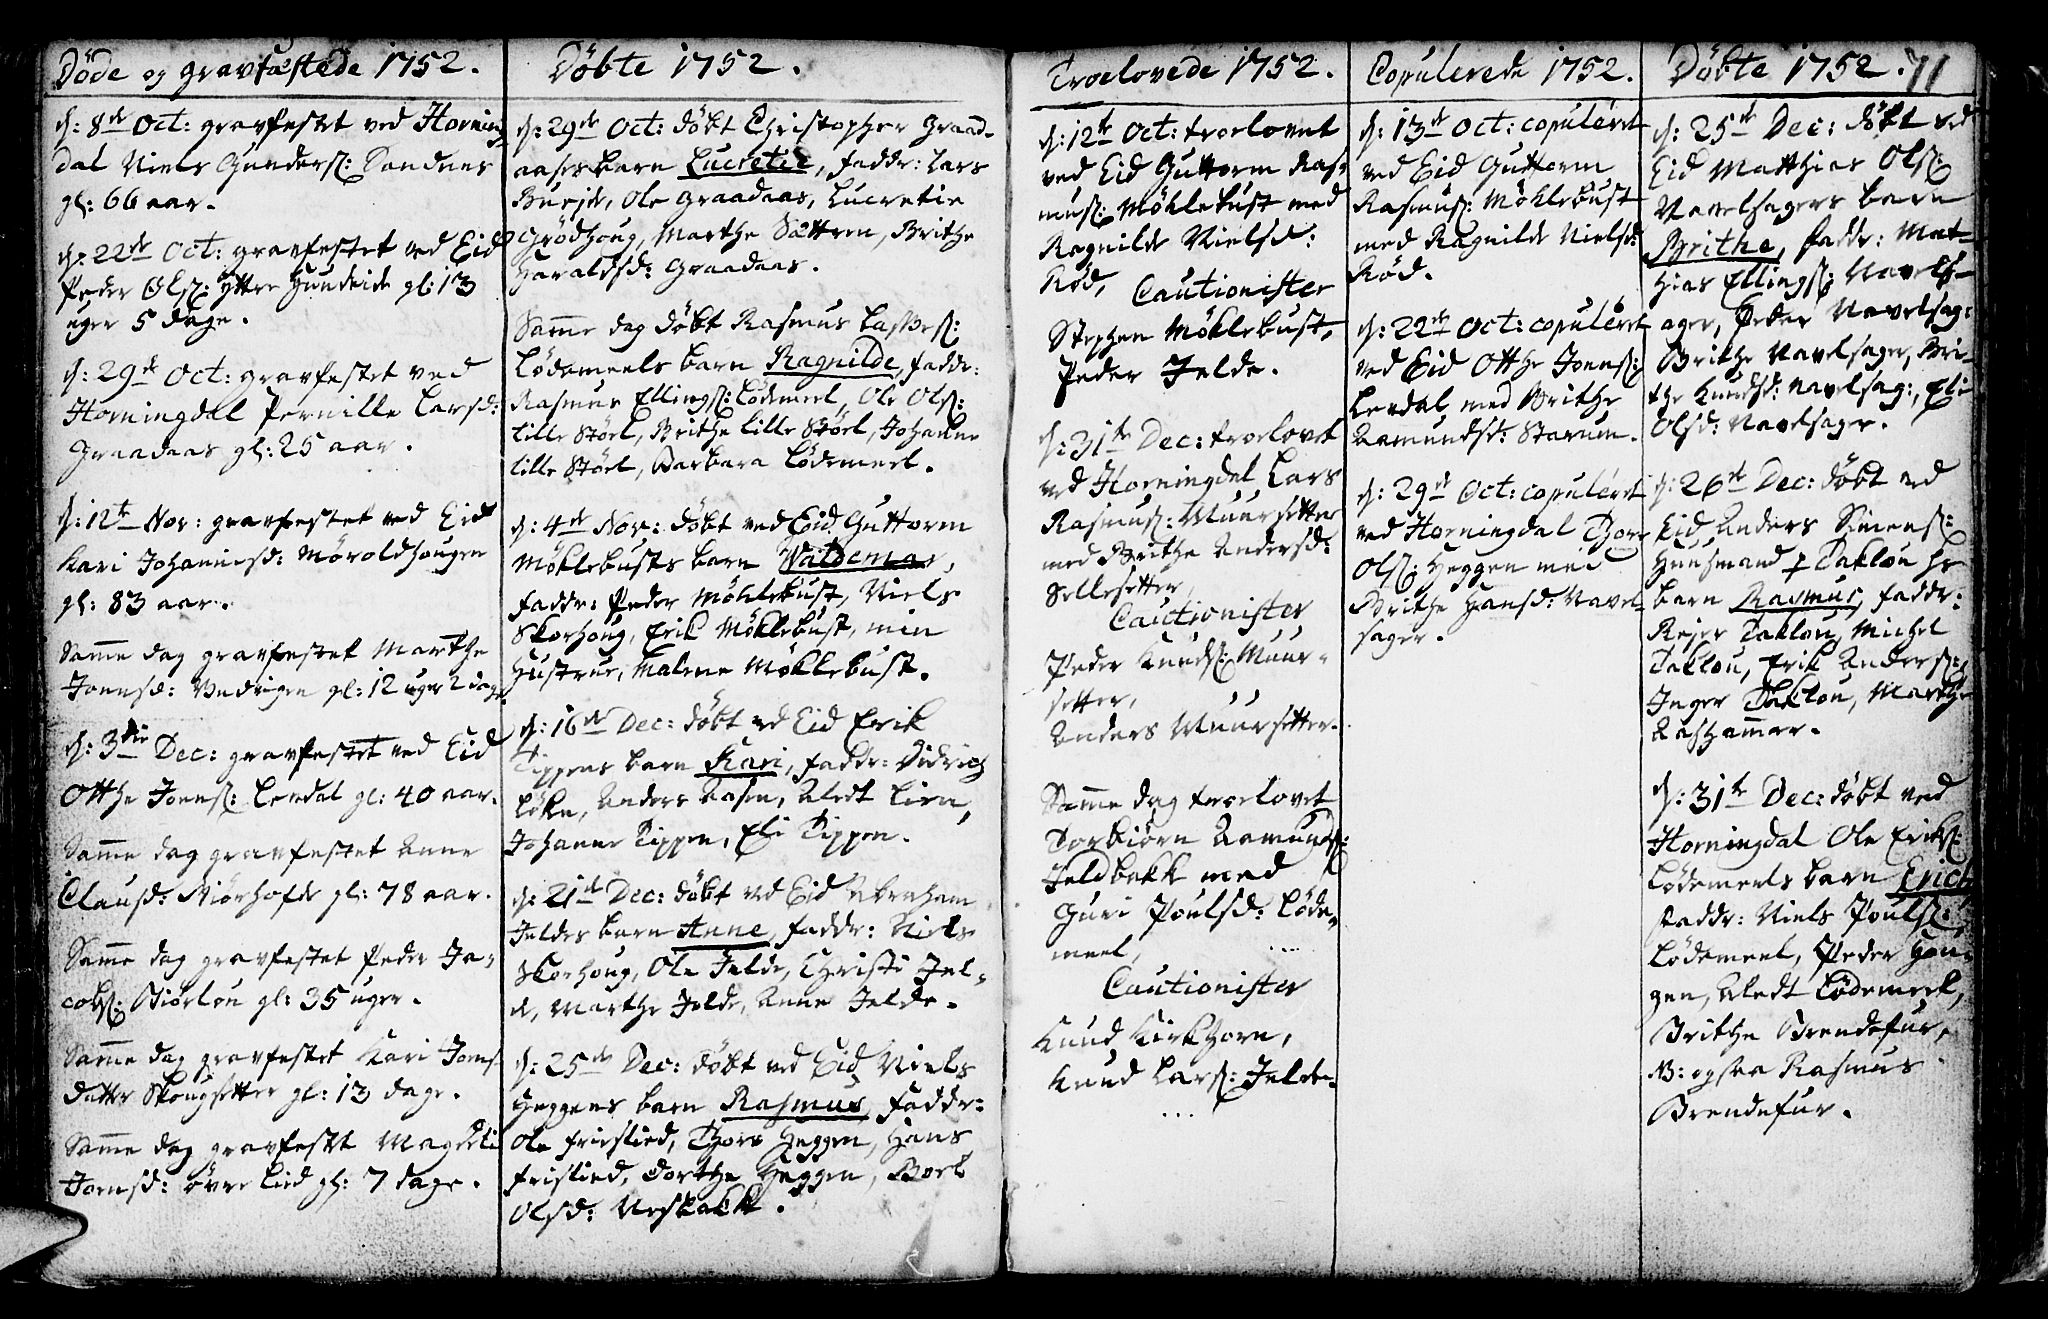 Döde og gravfæstede 1752.
d: 8de Oct: gravfestet ved Horning
dal Niels Gunders: Sandnes
gl: 66 aar.
d: 22de Oct: gravfestet ved Eid
Peder Ols: Ytre Hundeide gl: 13
uger 5 dage.
d: 29de Oct: gravfestet ved
Horningdal Pernille Larsd:
Graadaas gl: 25 aar.
d: 12te Nov: gravfestet ved Eid
Kari Johannisd: Möroldhougen
gl: 83 aar.
Samme dag gravfestet Marthe
Jonsd: gl: 12 uger 2 dage
d: 3die Dec: gravfestet ved Eid
Otthe Jonns: Lerdal gl: 40 aar.
Samme dag gravfestet Anne
Clausd: Niörhofde gl: 78 aar.
Samme dag gravfestet Peder Ja-
cobs: Biörlou gl: 35 uger.
Samme dag gravfestet Kari Jons
datter Skougsetter gl: 13 dage.
Samme dag gravfestet Magdeli
Jonsd: övre Lied gl: 7 dage.
Döbte 1752.
d: 29de Oct: döbt Christopher Graad-
aases barn Lucretie, faddr: Lars
Buejde, Ole Graadaas, Lucretie
Grödhoug, Marthe Sættren, Brithe
Haraldsd: Graadaas.
Samme dag döbt Rasmus Lasses:
Lödemeels barn Ragnilde, faddr:
Rasmus Ellings: Lödemeel, Ole Ols:
lille Störl, Brithe lille Störl, Johanne
lille Störl, Barbara Lödemeel.
d: 4de Nov: döbt ved Eid Guttorm
Möklebusts barn Waldemar,
faddr: Peder Möklebust, Niels
Skorhoug, Erik Möklebust, min
Hustrue, Malene Möklebust.
d: 16de Dec: döbt ved Eid Erik
Tippens barn Kari, faddr: Didrich
Löken, Anders Aasen, Aledt Lien,
Johanne Tippen, Eli Tippen.
d: 21de Dec: döbt ved Eid Abraham
Jeldes barn Anne, faddr: Niels
Skorhoug, Ole Jelde, Christi Jel-
de, Marthe Jelde, Anne Jelde.
d: 25de Dec: döbt ved Eid Niels
Heggens barn Rasmus, faddr:
Ole Frislied, Thore Heggen, Hans
Frislied, Dorthe Heggen, Boel
Olsd: Nesbakk.
Troelovede 1752.
d: 12te Oct: troelovet
ved Eid Guttorm Ras-
mus: Möklebust med
Ragnilde Nielsd:
Röd,
Cautionister
Stephen Möklebust,
Peder Jelde.
d: 31te Dec: troelovet
ved Horningdal Lars
Rasmus: Muursetter
med Brithe Andersd:
Sellesetter,
Cautionister
Peder Knuds: Muur-
setter,
Anders Muursetter.
Samme dag troelovet
Torbiörn Aamunds:
Jeldbakk med
Guri Poulsd: Löde-
meel,
Cautionister
Knud Kirkhorn,
Knud Lars: Jelde.
Copulerede 1752.
d: 13de Oct: copuléret
ved Eid Guttorm
Rasmus: Möklebust
med Ragnilde Nielsd:
Röd.
d: 22de Oct: copuléret
ved Eid Otthe Jonns:
Lerdal med Brithe
Aamundsd: Starum.
d: 29de Oct: copuléret
ved Horningdal Thore
Ols: Heggen med
Brithe Hansd: Navel-
sager.
Döbte 1752. 71
d: 25de Dec: döbt ved
Eid Matthias Ols:
Navelsagers barn
Brithe, faddr: Mat-
hias Ellings: Navels-
ager, Peder Navelsag:
Brithe Navelsager, Bri-
the Knudsd: Navelsag:, Eli
Olsd: Navelsager.
d: 26de Dec: döbt ved
Eid Anders Simens:
Huusmand p Taklou hs
barn Rasmus, faddr:
Rejer Taklou, Michel
Taklou, Erik Anders:
Inger Taklou, Marthe
Aashammer.
d: 31te Dec: döbt ved
Horningdal Ole Eriks:
Lödemeels barn Erich,
faddr: Niels Pouls:
Lödemeel, Peder Hou-
gen, Aledt Lödemeel,
Brithe Brendefur,
NB: ogsaa Rasmus
Brendefur.